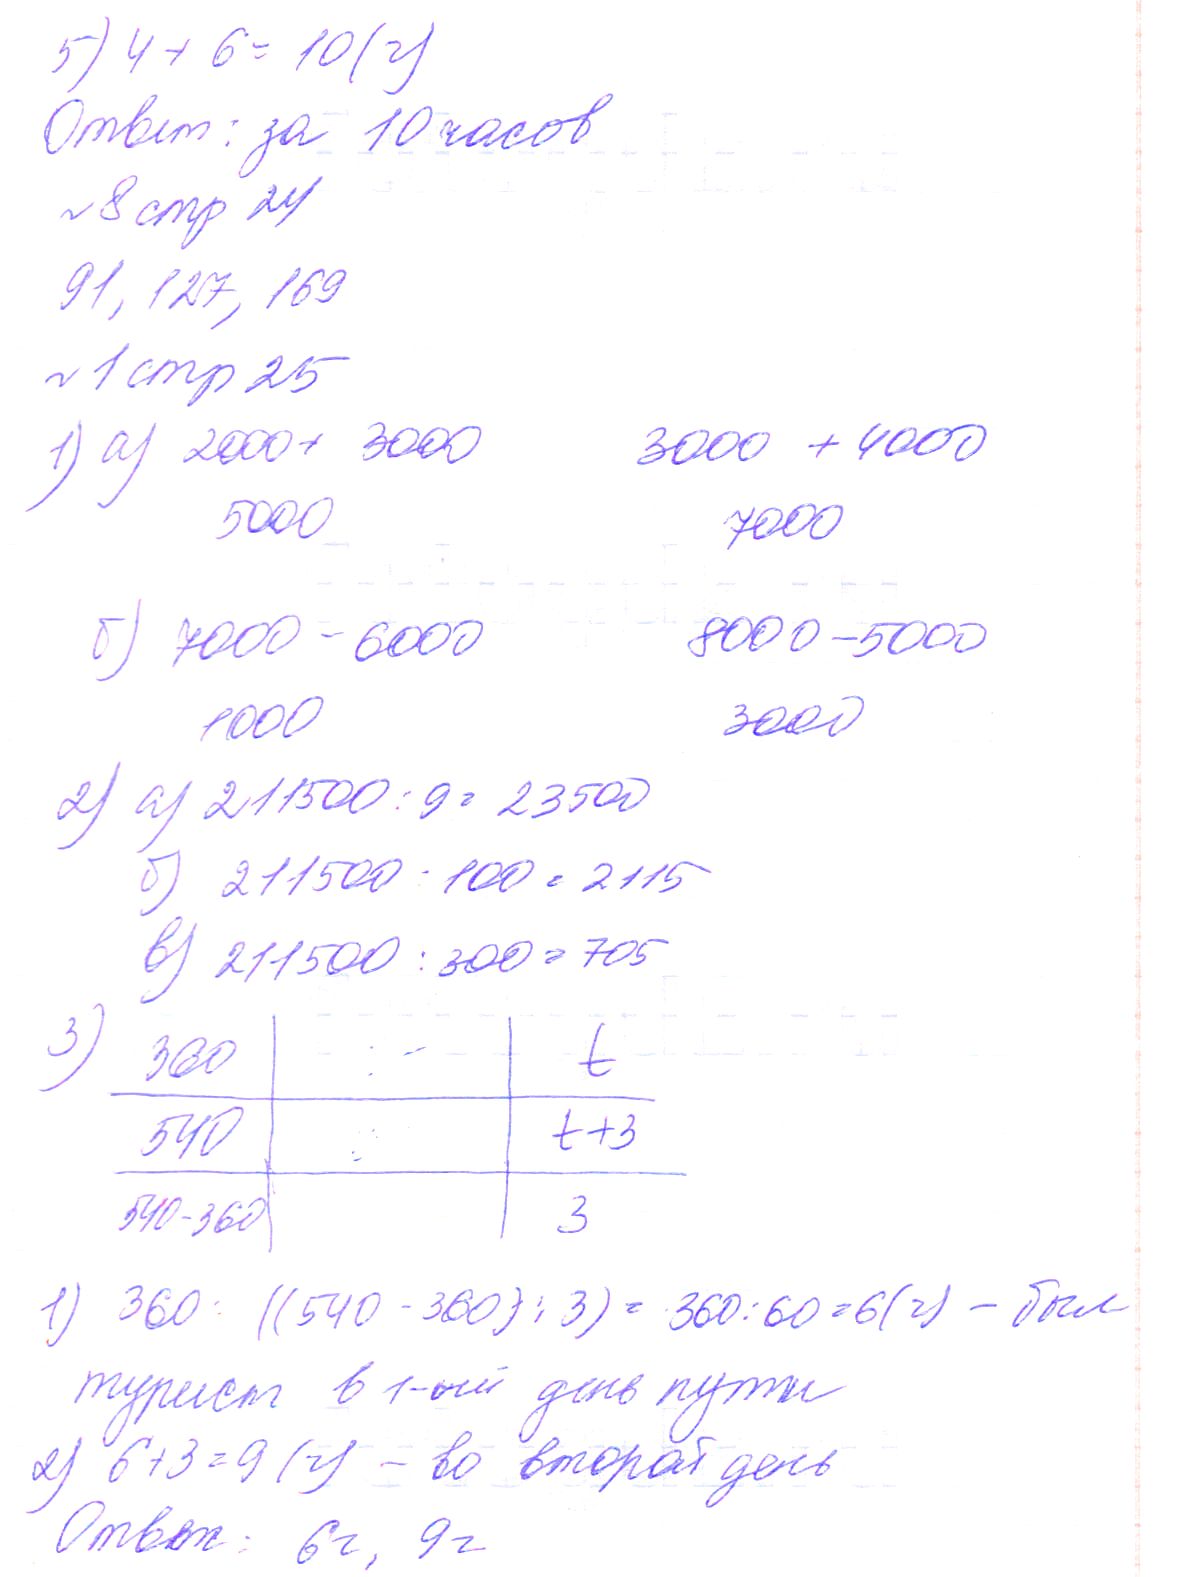 5) 4 + 6 = 10 (ч)
Ответ: за 10 часов
№ 8 стр 24
91, 127, 169
№ 1 стр 25
1) а) 2000 + 3000 3000 + 4000
5000 7000
б) 7000 - 6000 8000 - 5000
1000 3000
2) а) 211500 : 9 = 23500
б) 211500 : 100 = 2115
в) 211500 : 300 = 705
3) 360 t
540 t+3
540-360 3
1) 360 : ((540 - 360) : 3) = 360 : 60 = 6 (ч) - был
турист в 1-ый день пути
2) 6 + 3 = 9 (ч) - во второй день
Ответ: 6ч, 9ч